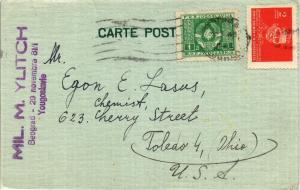 CARTE POST
MIL. M. YLITCH
Beograd - 29 novembra
Yougoslavie
Mr.
Egon E.
Chemist,
623. Cherry Street
Toledo 4, Ohio)
U. S. A.